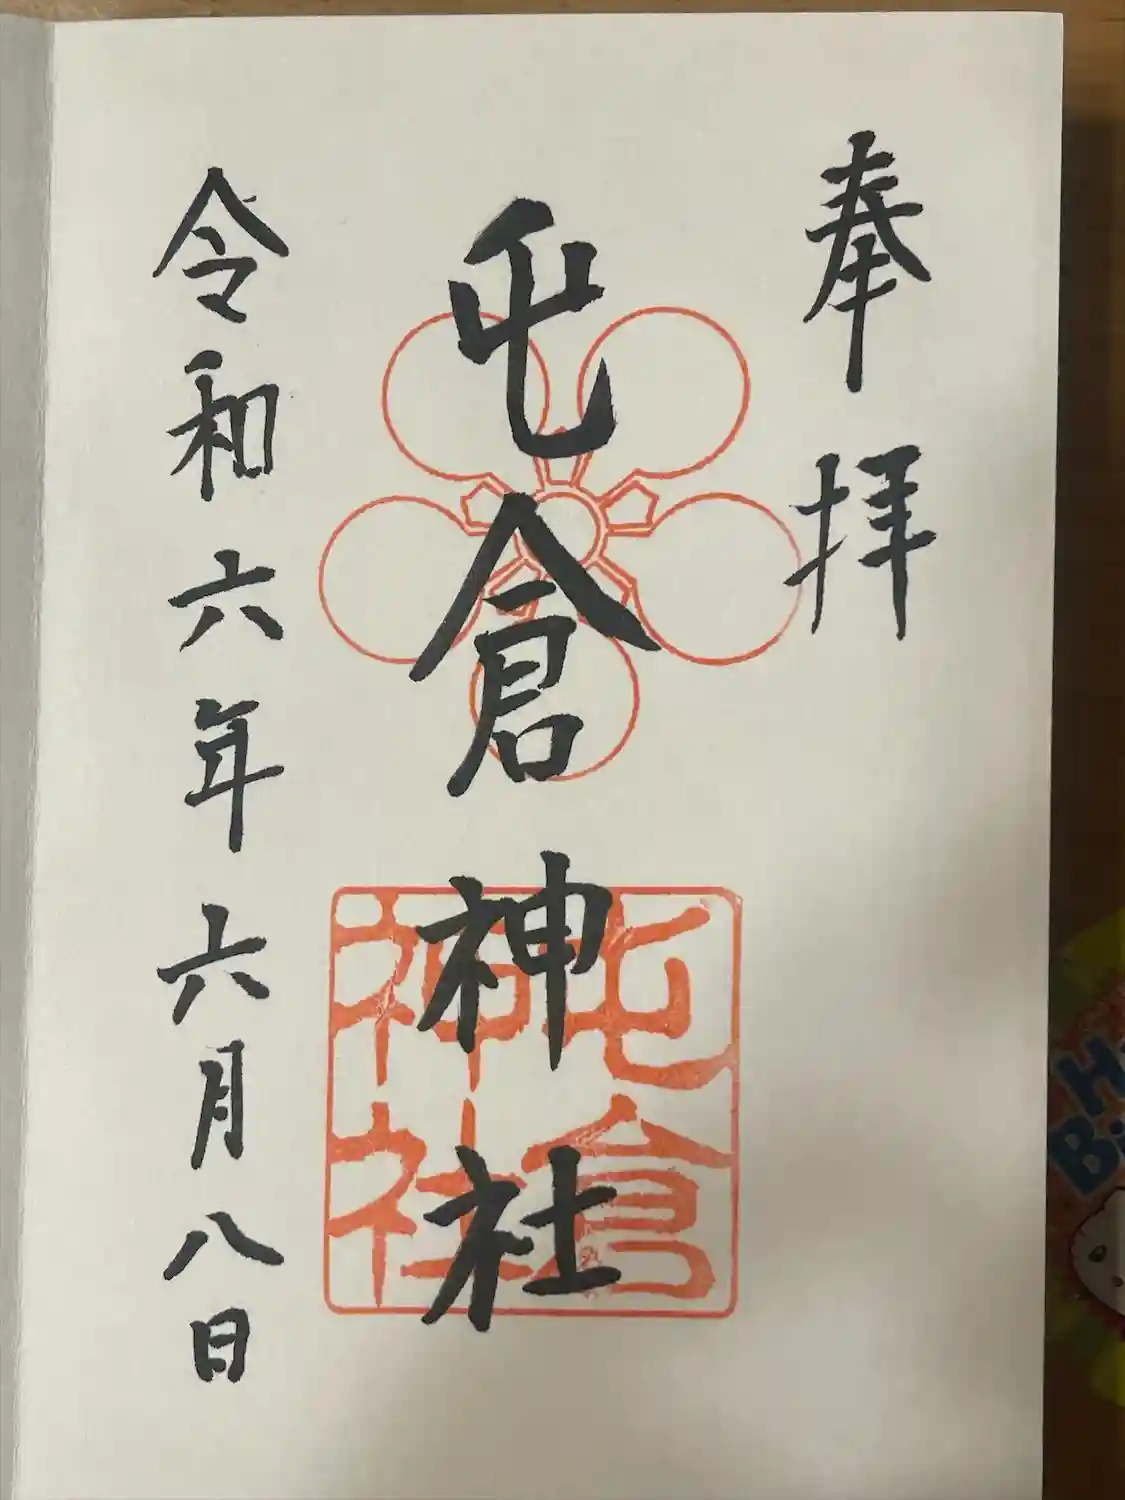 奉拝
屯倉神社
屯倉神社
令和六年六月八日